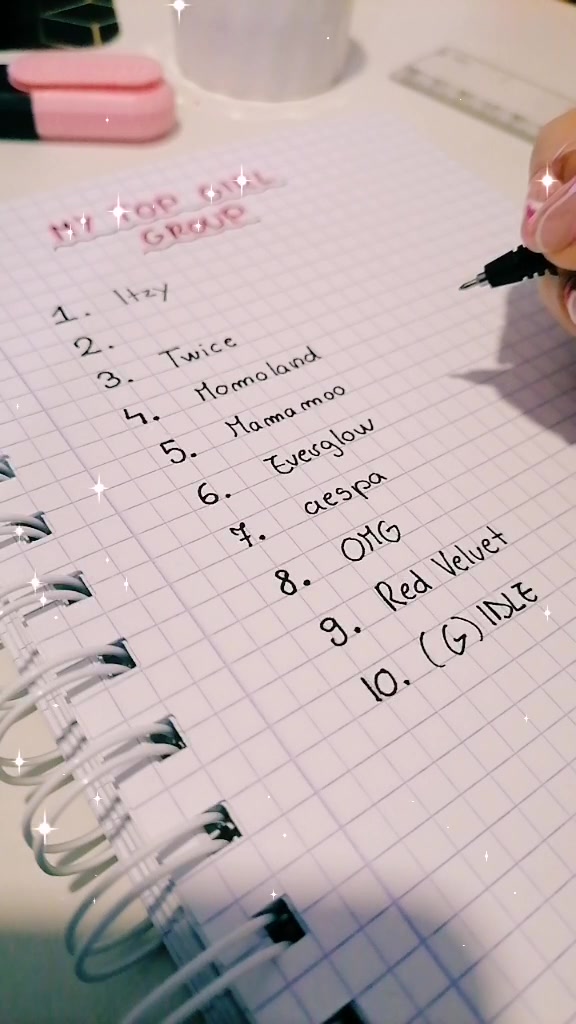 MY TOP GIRL
GROUP
1. Itzy
2.
3. Twice
4. Momoland
5. Mamamoo
6. Everglow
7. aespa
8. OMG
9. Red Velvet
10. (G) IDLE